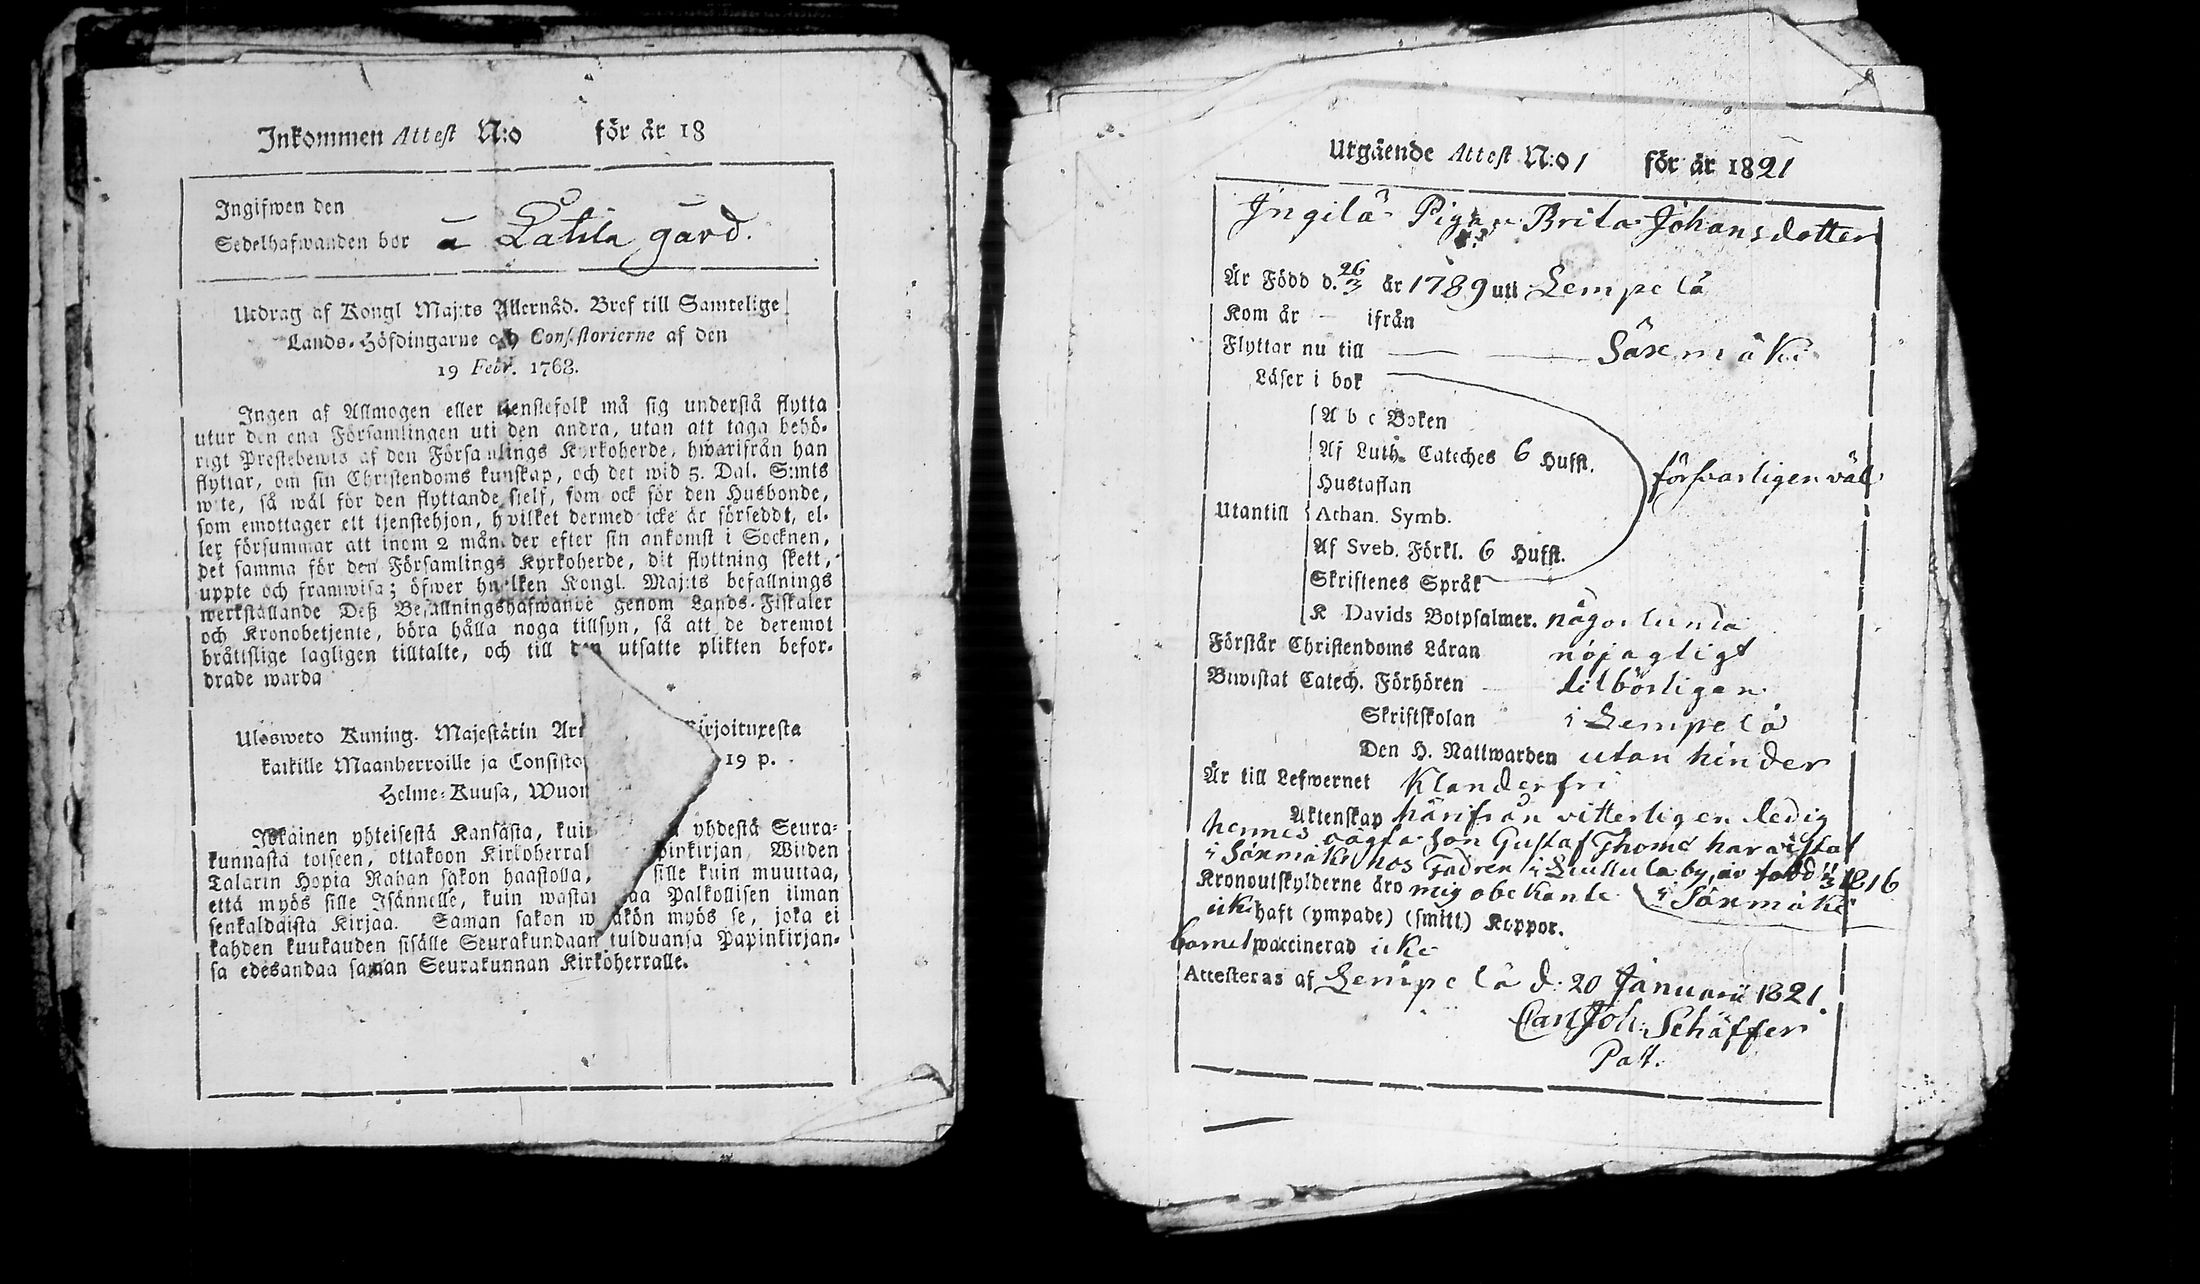 Inkommen Attest N:o för år 18
Ingifwen den
Sedelhafwanden bor å Latila gård.
Utdrag af Kongl Maj:ts Allernåd. Bref till Samtelige
Lands-Höfdingarne och Consistorierne af den
19 Febr. 1768.
Ingen af Allmogen eller tjenstefolk må sig understå flytta
utur den ena Församlingen uti den andra, utan att taga behö-
rigt Prestebewis af den Församlings Kyrkoherde, hwarifrån han
flyttar, om sin Christendoms kunskap, och det wid 5. Dal. S:mts
wite, så wäl för den flyttande sjelf, som ock för den Husbonde,
som emottager ett tjenstehjon, hwilket dermed icke är försedt, el-
ler försummar att inom 2 månader efter sin ankomst i Socknen,
det samma för den Församlings Kyrkoherde, dit flyttning skett,
uppte och framwisa; öfwer hwilken Kongl. Maj:ts befallnings
werkställande Deß Befallningshafwande genom Lands-Fiskaler
och Kronobetjente, böra hålla noga tillsyn, så att de deremot
bråttslige lagligen tilltalte, och till den utsatte plikten befor-
drade warda
Ulosweto Kuning. Majestätin Ar kirjoituxesta
kaikille Maanherroille ja Consisto 19 p.
Helme-Kuusa, Wuon
Jokainen yhteisestä Kansasta, kuin yhdestä Seura-
kunnasta toiseen, ottakoon Kirkoherral pinkirjan, Wijden
Talarin Hopia Rahan sakon haastolla, sille kuin muuttaa,
että myös sille Isännelle, kuin wastan aa Palkollisen ilman
senkaldaista Kirjaa. Saman sakon w akön myös se, joka ei
kahden kuukauden sisälle Seurakundaan tulduansa Papinkirjan-
sa edesandaa saman Seurakunnan Kirkoherralle.
Utgående Attest N:o 1 för år 1821
Ingilä Pigan Brita Johansdotter
Är Född d. 26/3 år 1789 uti Lempelä
Kom år — ifrån
Flyttar nu till — — Säxmäki
Läser i bok
A b c Boken
Af Luth. Cateches 6 Hufst.
Hustaflan
försvarligen väl
Utantill Athan. Symb.
Af Sveb. Förkl. 6 Hufst.
Skriftenes Språk
K Davids Botpsalmer. någorlunda
Förstår Christendoms Läran nöjagligt
Biwistat Catech. Förhören tilbörligen
Skriftskolan i Lempelä
Den H. Nattwarden utan hinder
Är till Lefwernet Klanderfri
Äktenskap härifrån vitterligen ledig
hennes oägta Son Gustaf Thomé har vistat
i Säxmäki hos Fadren i Lullula by, är född 11/3 1816
Kronoutskylderne äro mig obekante i Säxmäki
icke haft (ympade) (smitt.) Koppor.
barnet waccinerad icke
Attesteras af Lempelä d. 20 Januarii 1821.
Carl Joh. Schäffer
Past.